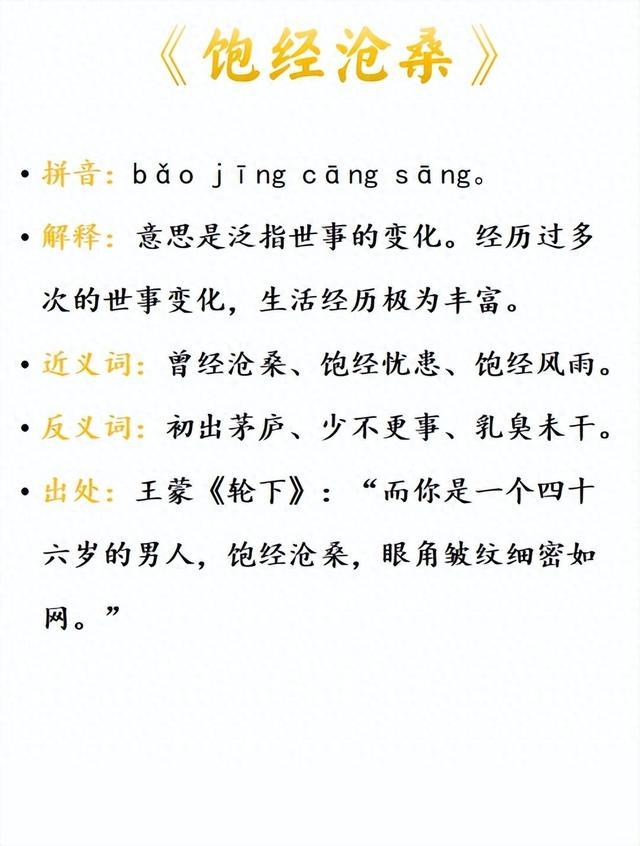 《饱经沧桑》
• 拼音：bǎo jīng cāng sāng。
• 解释：意思是泛指世事的变化。经历过多
次的世事变化，生活经历极为丰富。
• 近义词：曾经沧桑、饱经忧患、饱经风雨。
• 反义词：初出茅庐、少不更事、乳臭未干。
• 出处：王蒙《轮下》：“而你是一个四十
六岁的男人，饱经沧桑，眼角皱纹细密如
网。”